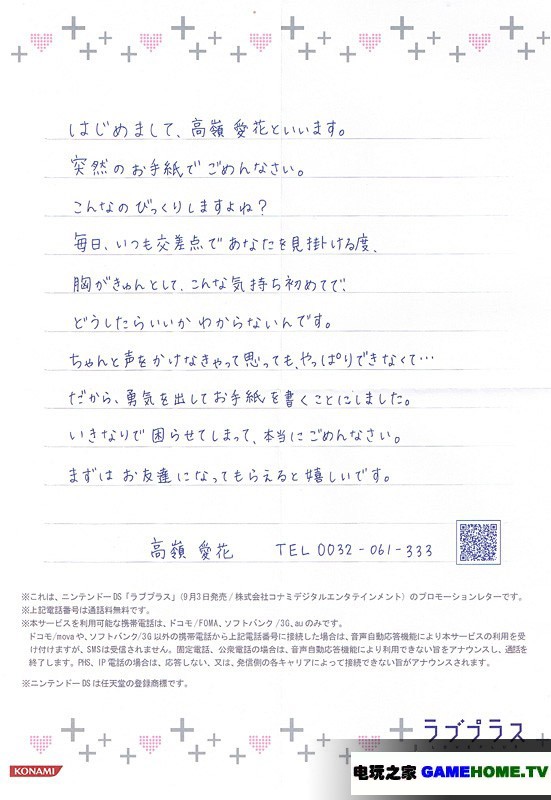 はじめまして、高嶺 愛花といいます。
突然のお手紙で ごめんなさい。
こんなの びっくりしますよね？
毎日、いつも交差点で あなたを見掛ける度、
胸がきゅんとして、こんな気持ち初めてで、
どうしたらいいか わからないんです。
ちゃんと声をかけなきゃって思っても、やっぱりできなくて…
だから、勇気を出してお手紙を書くことにしました。
いきなりで 困らせてしまって、本当にごめんなさい。
まずは お友達になってもらえると嬉しいです。
高嶺 愛花 TEL 0032-061-333
※これは、ニンテンドーDS「ラブプラス」(9月3日発売/株式会社コナミデジタルエンタテインメント)のプロモーションレターです。
※上記電話番号は通話料無料です。
※本サービスを利用可能な携帯電話は、ドコモ/FOMA、ソフトバンク/3G、auのみです。
ドコモ/movaや、ソフトバンク/3G以外の携帯電話から上記電話番号に接続した場合は、音声自動応答機能により本サービスの利用を受
け付けますが、SMSは受信されません。固定電話、公衆電話の場合は、音声自動応答機能により利用できない旨をアナウンスし、通話を
終了します。PHS、IP電話の場合は、応答しない、又は、発信側の各キャリアによって接続できない旨がアナウンスされます。
※ニンテンドーDSは任天堂の登録商標です。
ラブプラス
KONAMI
电玩之家 GAMEHOME.TV